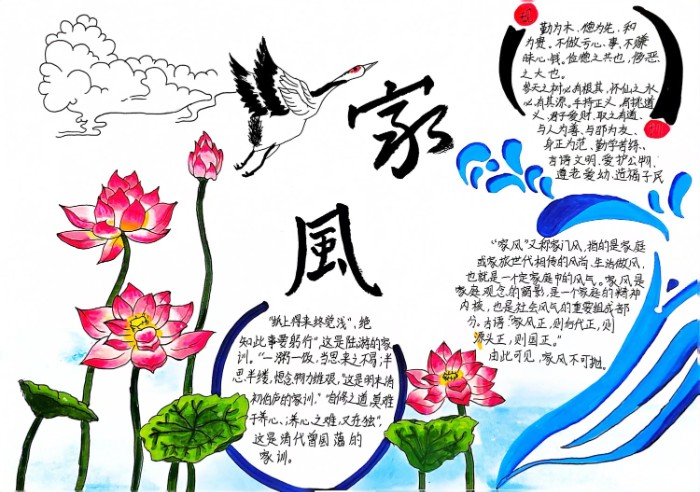 家
風
勤为本、德为先、和
为贵。不做亏心事、不赚
昧心钱。俭德之共也,侈恶
之大也。
参天之树必有根其,怀山之水
必有其源。手持正义、肩挑道
义、君子爱财、取之有道、
与人为善、与邻为友、
身正为范、勤学苦练、
言语文明、爱护公物、
尊老爱幼、造福子民
"家风"又称家门风,指的是家庭
或家族世代相传的风尚、生活做风,
也就是一个家庭中的风气。家风是
家庭观念的缩影,是一个家庭的精神
内核,也是社会风气的重要组成部
分。古语"家风正,则后代正,则
源头正,则国正。"
由此可见,家风不可抛。
"纸上得来终觉浅",绝
知此事要躬行",这是陆游的家
训。"一粥一饭,当思来之不易;半
思半缕,恒念物力维艰,"这是明末清
初伯庐的家训。"自修之道,莫难
于养心;养心之难,又在独",
这是清代曾国藩的
家训。